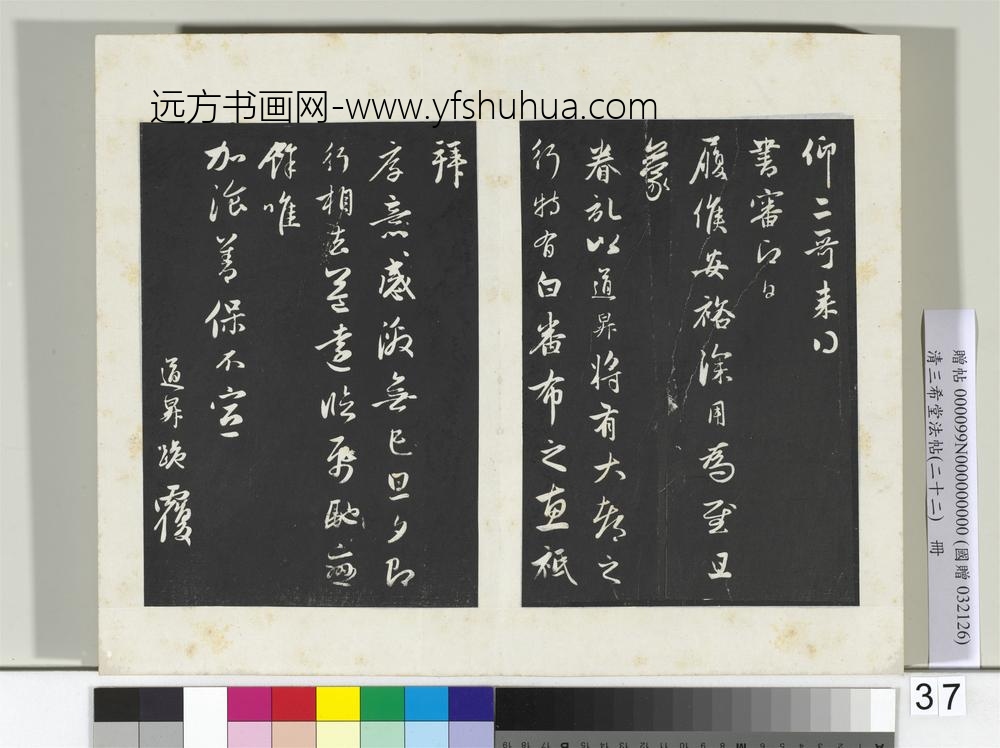 远方书画网-www.yfshuhua.com
仰二哥来
書審即日
履候安裕深用為慰且
蒙
眷記以道昇將有大都之
行特有白番布之惠祗
拜
厚意感激無已旦夕即
行相去益遠臨紙馳戀
餘唯
加飡善保不宣
道昇跪覆
贈帖 000099N000000000 (國贈 032126)
清三希堂法帖(二十二) 冊
37